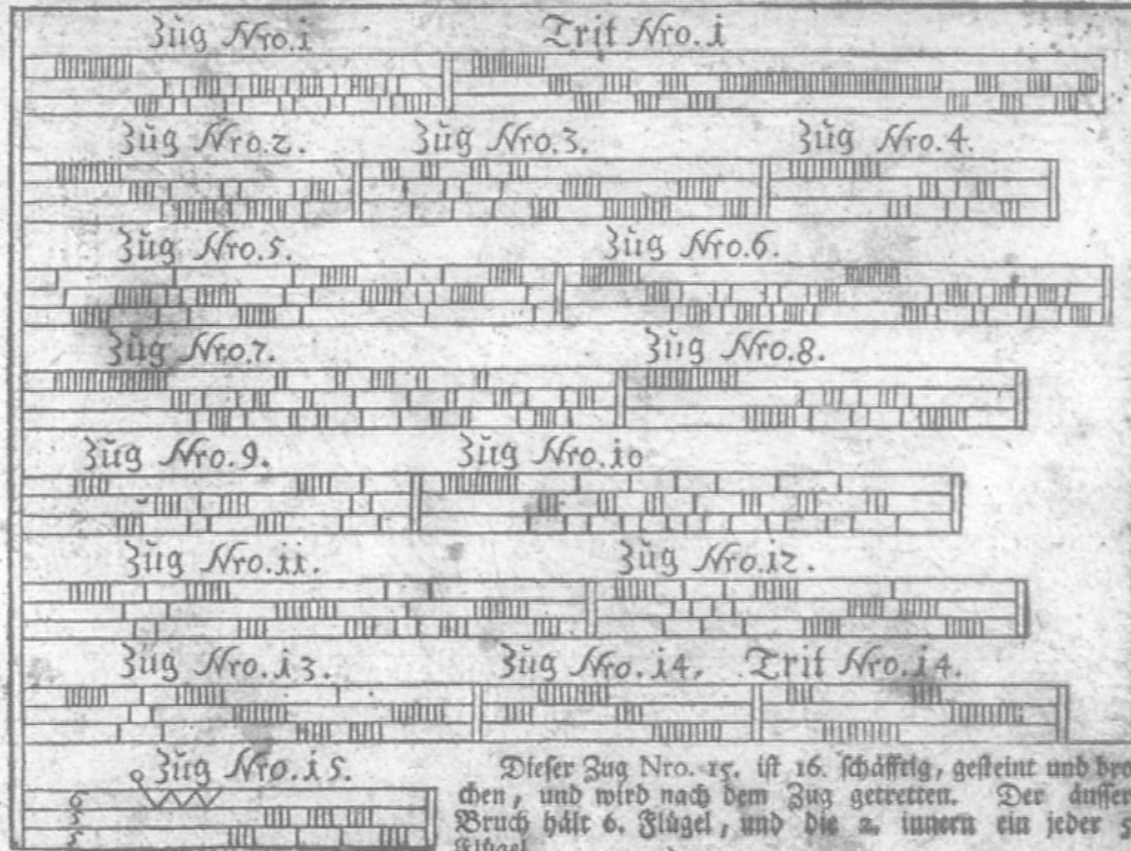 Zŭg Nro.1 Trit Nro.1
Zŭg Nro.2. Zŭg Nro.3. Zŭg Nro.4.
Zŭg Nro.5. Zŭg Nro.6.
Zŭg Nro.7. Zŭg Nro.8.
Zŭg Nro.9. Zŭg Nro.10
Zŭg Nro.11. Zŭg Nro.12.
Zŭg Nro.13. Zŭg Nro.14. Trit Nro.14.
Zŭg Nro.15.
6
5
5
Dieser Zug Nro. 15. ist 16. schäfftig, gesteint und bro
chen, und wird nach dem Zug getretten. Der äusser
Bruch hält 6. Flügel, und die 2. innern ein jeder 5
Flügel